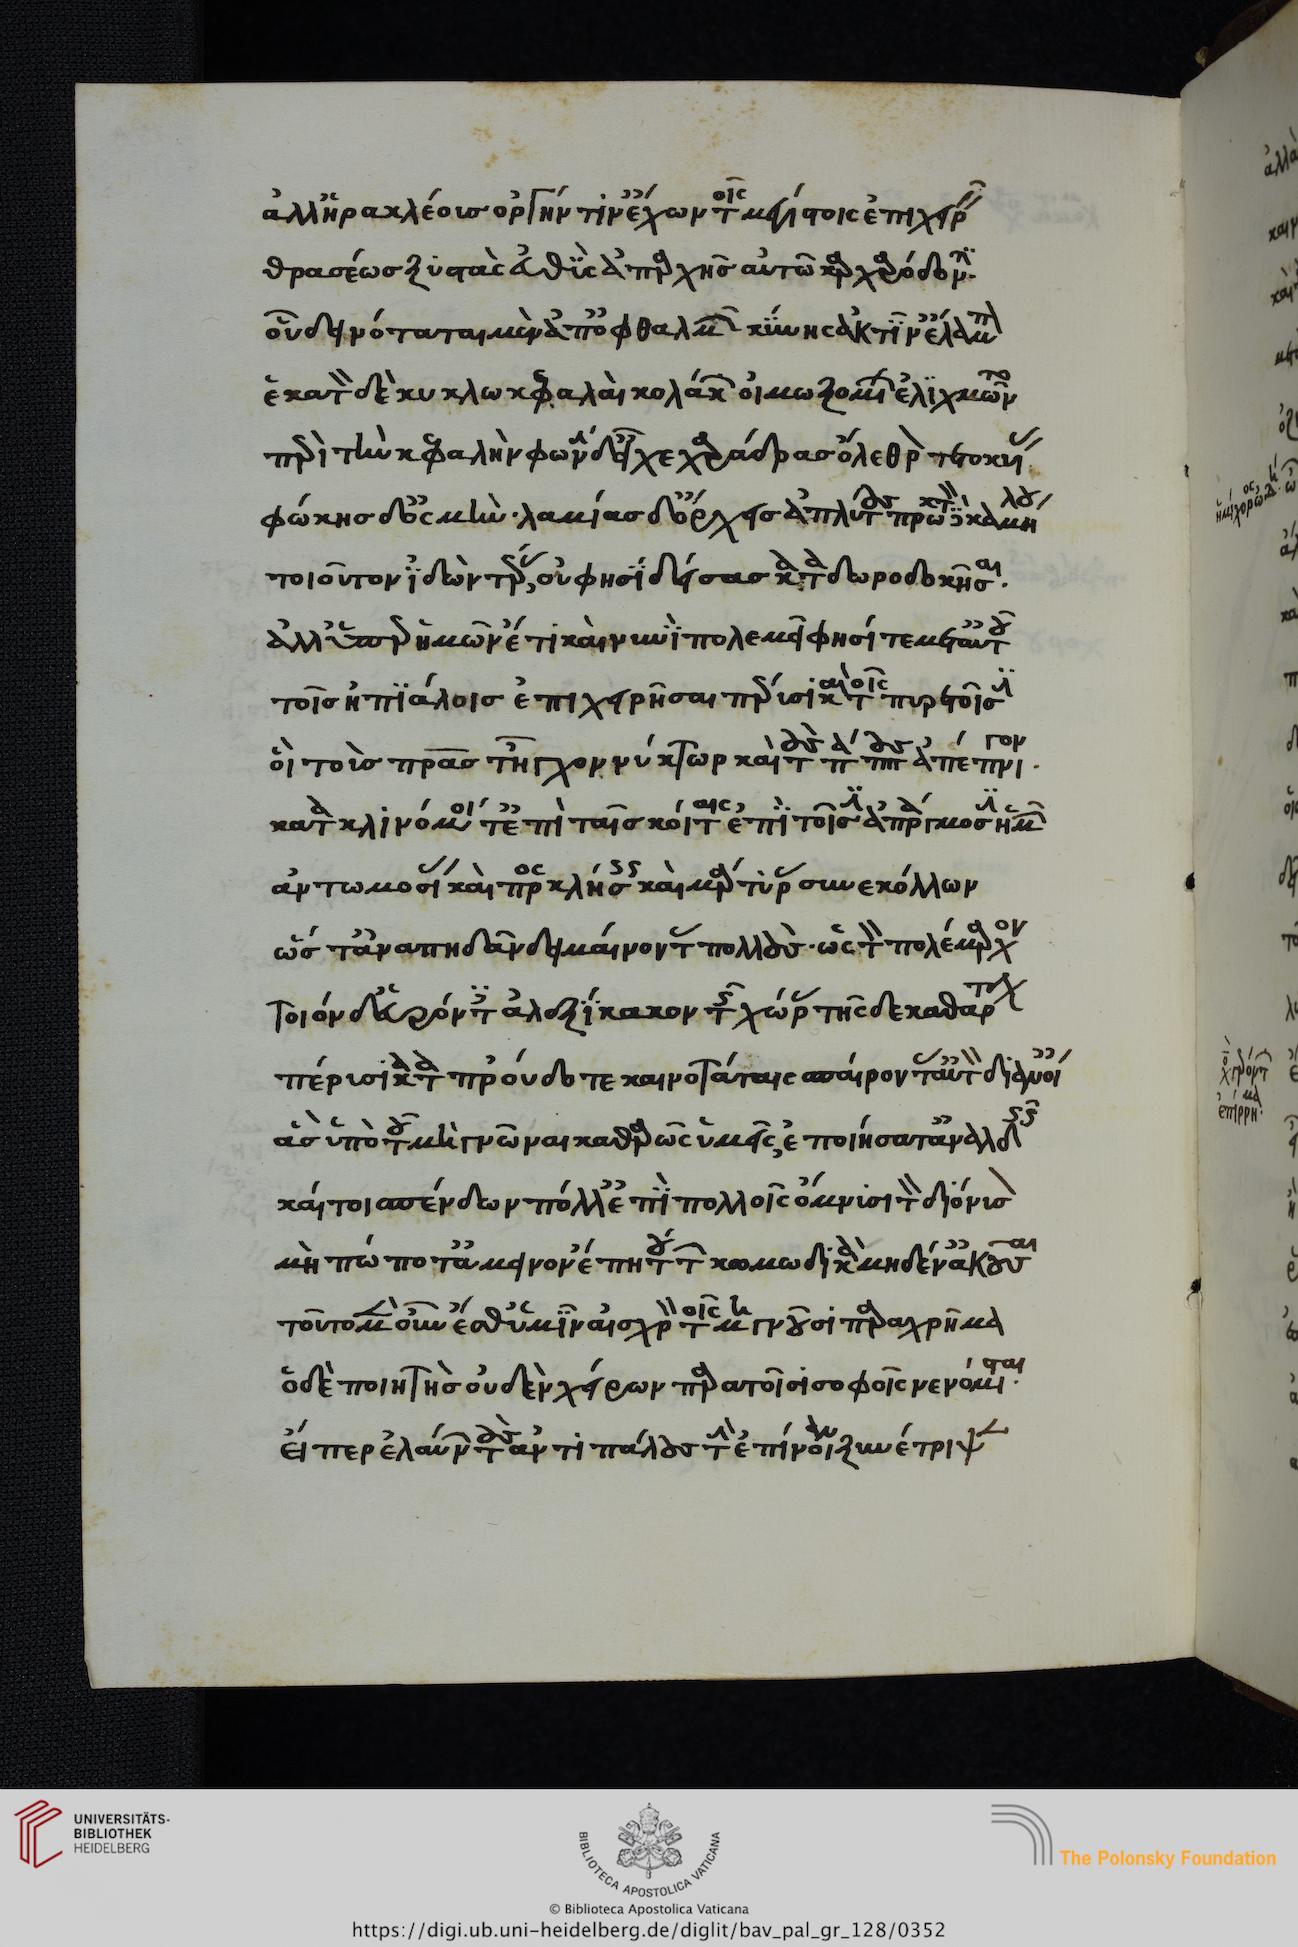 ἀλλ' ἡρακλέοις ὀργήν τιν' ἔχων τοῖς μεγίστοις ἐπιχειρεῖ
θρασέως ξυστὰς εὐθὺς ἀπ' ἀρχῆς αὐτῶ καρχαρόδοντι.
οὗ δεινόταται μὲν ἀπ' ὀφθαλμῶν κύνης ἀκτῖνες ἔλαμπον
ἑκατὸν δὲ κύκλω κεφαλαὶ κολάκων οἰμωξομένων ἐλιχμῶντο
περὶ τὴν κεφαλὴν φωνὴν δ' εἶχε χαράδρας ὄλεθρον τετοκυίας.
φώκης δ' ὀσμὴν· λαμίας δ' ὄρχεις ἀπλύτους πρωκτὸν δὲ καμήλου
τοιοῦτον ἰδὼν τέρας, οὔ φησὶ δείσας καταδωροδοκῆσαι.
ἀλλ' ὑπὲρ ἡμῶν ἔτι καὶ νυνὶ πολεμεῖ φησί τε μετ' αὐτοῦ
τοῖς ἠπιάλοις ἐπιχειρῆσαι πέρυσι καὶ τοῖς πυρετοῖσιν
οἳ τοὺς πατέρας τ' ἦγχον νύκτωρ καὶ τοὺς πάππους ἀπέπνιγον.
κατακλινόμενοί τ' ἐπὶ ταῖς κοίταις ἐπὶ τοῖσιν ἀπράγμοσιν ἡμῶν
ἀντωμοσίας καὶ προσκλήσεις καὶ μαρτυρίας συνεκόλλων
ὥστ' ἀναπηδᾶν δειμαίνοντας πολλοὺς· ὡς τὸν πολέμαρχον
τοιόνδ' εὑρόντες ἀλεξίκακον τῆς χώρας τῆσδε καθαρτὴν
πέρυσι καταπρούδοτε καινοτάταις σπείροντ' αὐτὸν διανοίαις
ἃς ὑπὸ τοῦ μὴ γνῶναι καθαρῶς ὑμεῖς, ἐποιήσατ' ἀναλδεῖς
καίτοι σπένδων πόλλ' ἐπὶ πολλοῖς ὄμνυσι τὸν διόνυσον
μὴ πώποτ' ἀμείνον' ἔπη τούτων κωμωδικὰ μηδέν' ἀκοῦσαι
τοῦτο μὲν οὖν ἔσθ' ὑμῖν αἰσχρὸν τοῖς μὴ γνοῦσι παραχρῆμα
ὁ δὲ ποιητὴς οὐδὲν χείρων παρὰ τοῖσι σοφοῖς νενόμισται.
εἴπερ ἐλαύνων τοὺς ἀντιπάλους τὴν ἐπίνοιαν ξυνέτριψεν
UNIVERSITÄTS-
BIBLIOTHEK
HEIDELBERG
BIBLIOTECA APOSTOLICA VATICANA
© Biblioteca Apostolica Vaticana
The Polonsky Foundation
https://digi.ub.uni-heidelberg.de/diglit/bav_pal_gr_128/0352